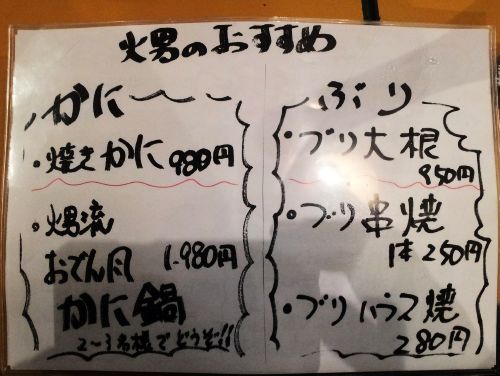 火男のおすすめ
かに〜〜
・焼きかに 980円
・火男流
おでん風 1.980円
かに鍋
2〜3名様でどうぞ!!
ぶり
・ブリ大根
950円
・ブリ串焼
1本 250円
・ブリハラス焼
280円